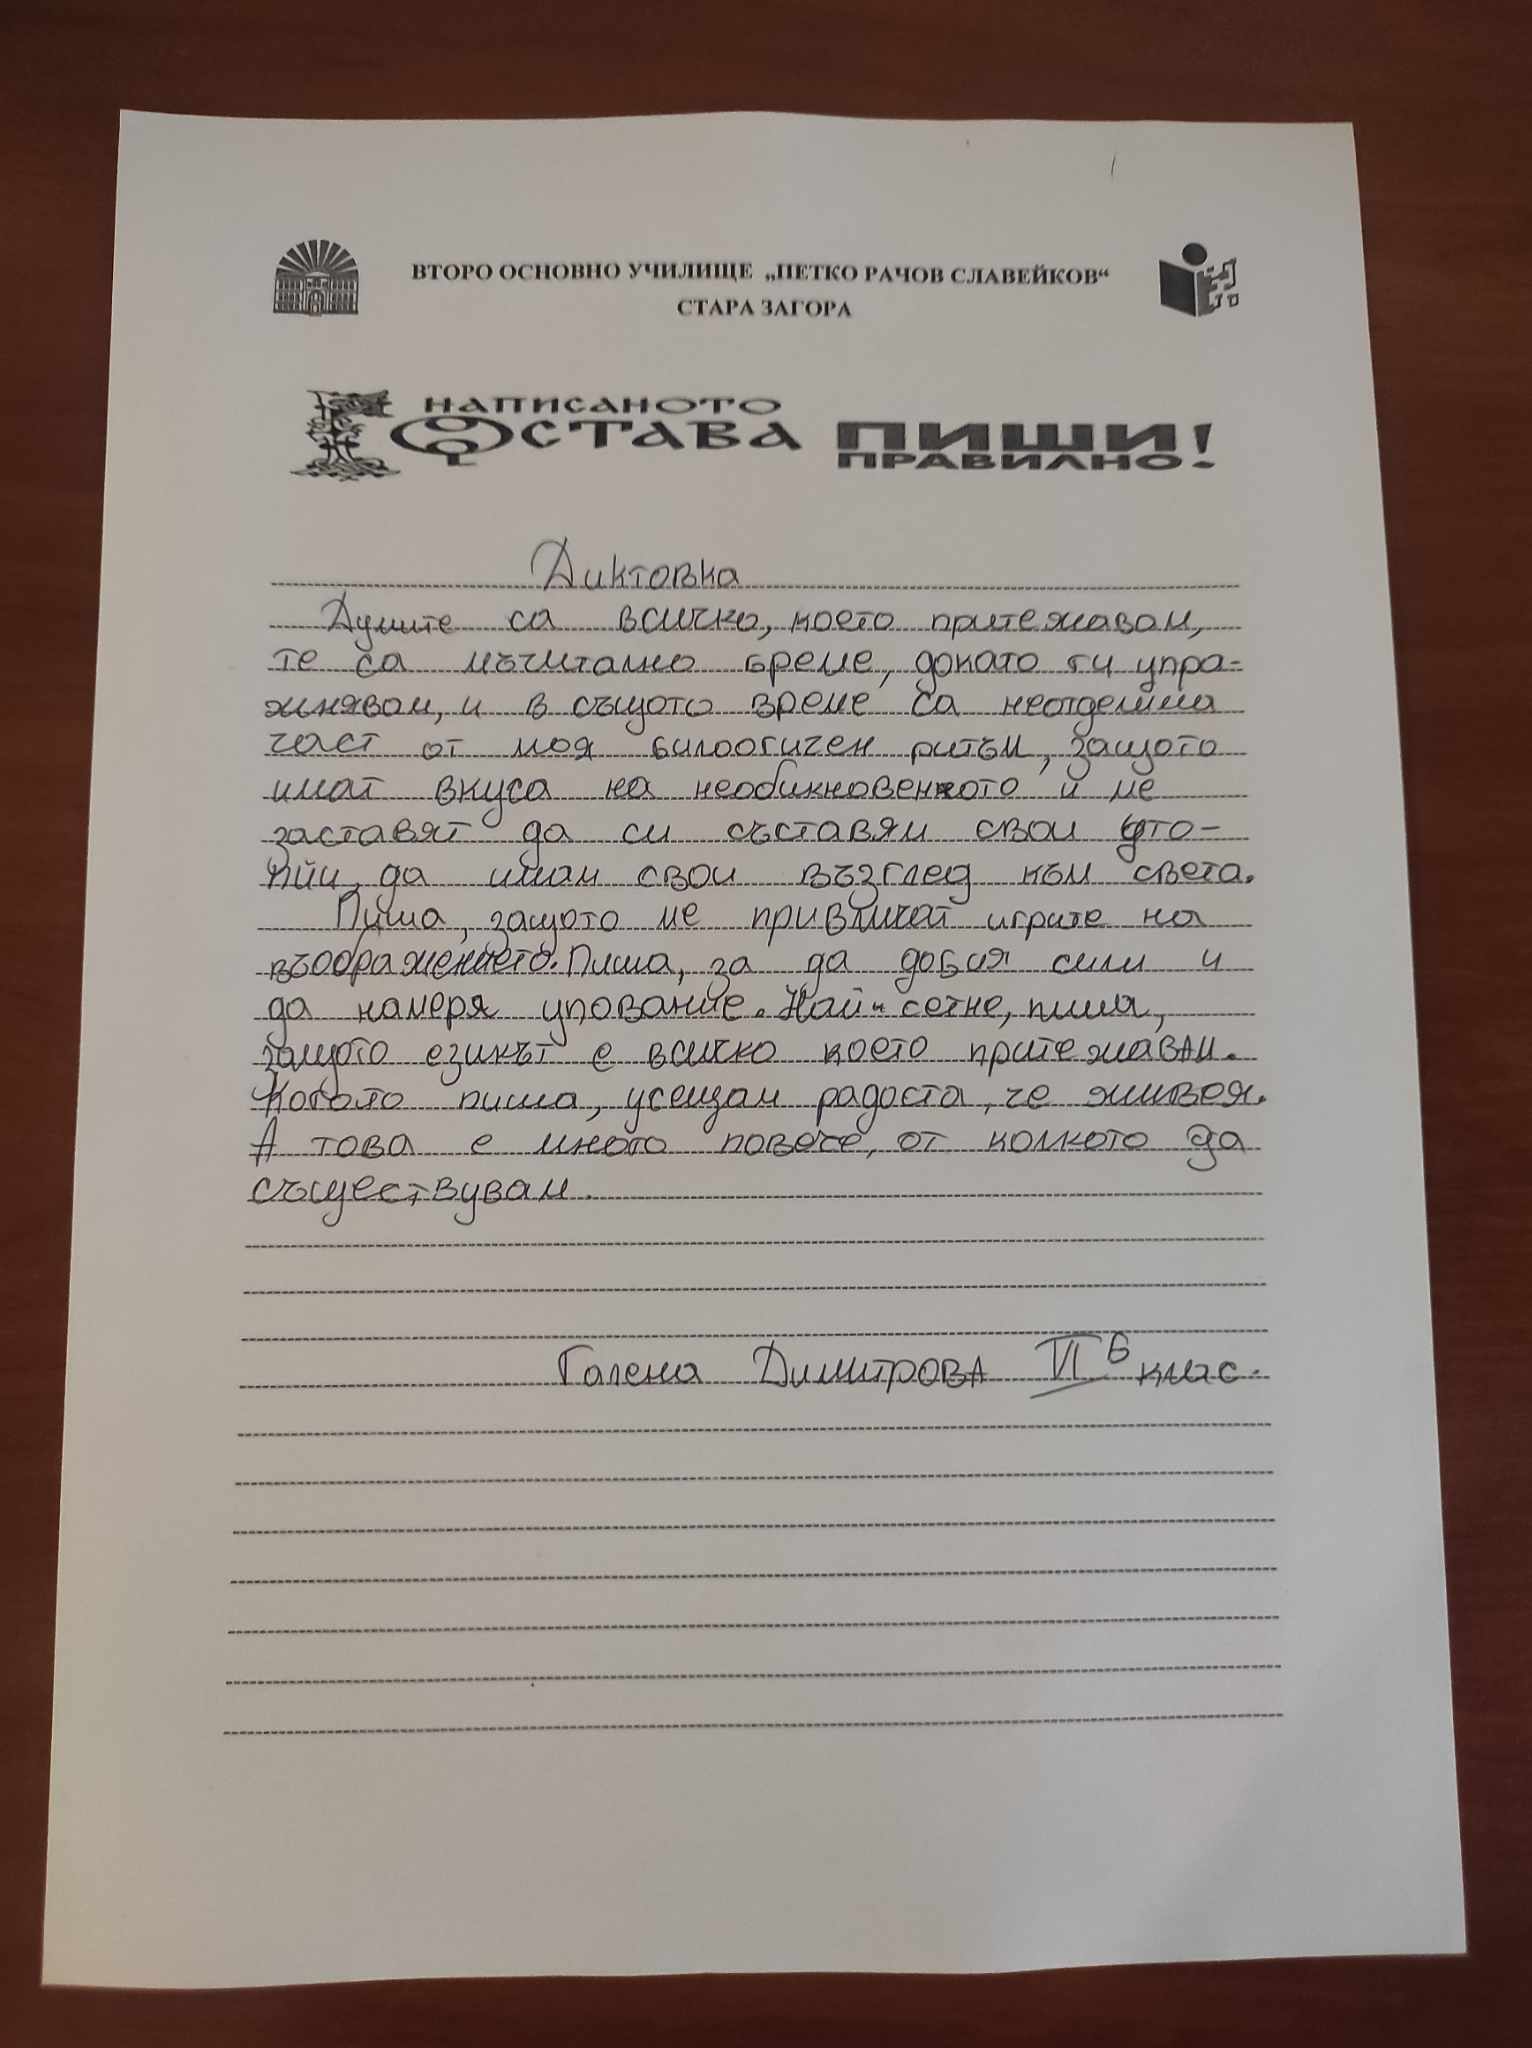 ВТОРО ОСНОВНО УЧИЛИЩЕ „ПЕТКО РАЧОВ СЛАВЕЙКОВ“
СТАРА ЗАГОРА
НАПИСАНОТО
ОСТАВА ПИШИ
ПРАВИЛНО!
Диктовка
Думите са всичко, което притежавам,
те са мъчително бреме, докато ги упра-
жнявам, и в същото време са неотделима
част от моя билоогичен ритъм, защото
имат вкуса на необикновенното и ме
заставят да си съставям свои уто-
пйи, да имам свои възглед към света.
Пиша, защото ме привличат игрите на
въображението. Пиша, за да добия сили и
да намеря упование. Най-сетне, пиша,
защото езикът е всичко което притежавам.
Когато пиша, усещам радостта, че живея.
А това е много повече, от колкото да
съществувам.
Галена Димитрова VI б клас.